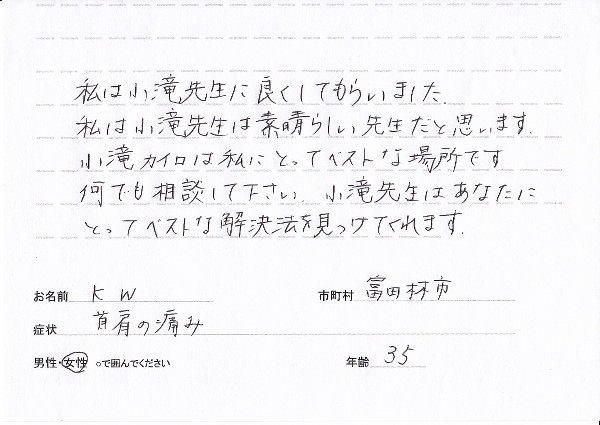 私は小滝先生に良くしてもらいました.
私は小滝先生は素晴らしい先生だと思います.
小滝カイロは私にとってベストな場所です
何でも相談して下さい. 小滝先生はあなたに
とってベストな解決法を見つけてくれます.
お名前 K W 市町村 富田林市
症状 首肩の痛み
男性・女性 ○で囲んでください 年齢 35